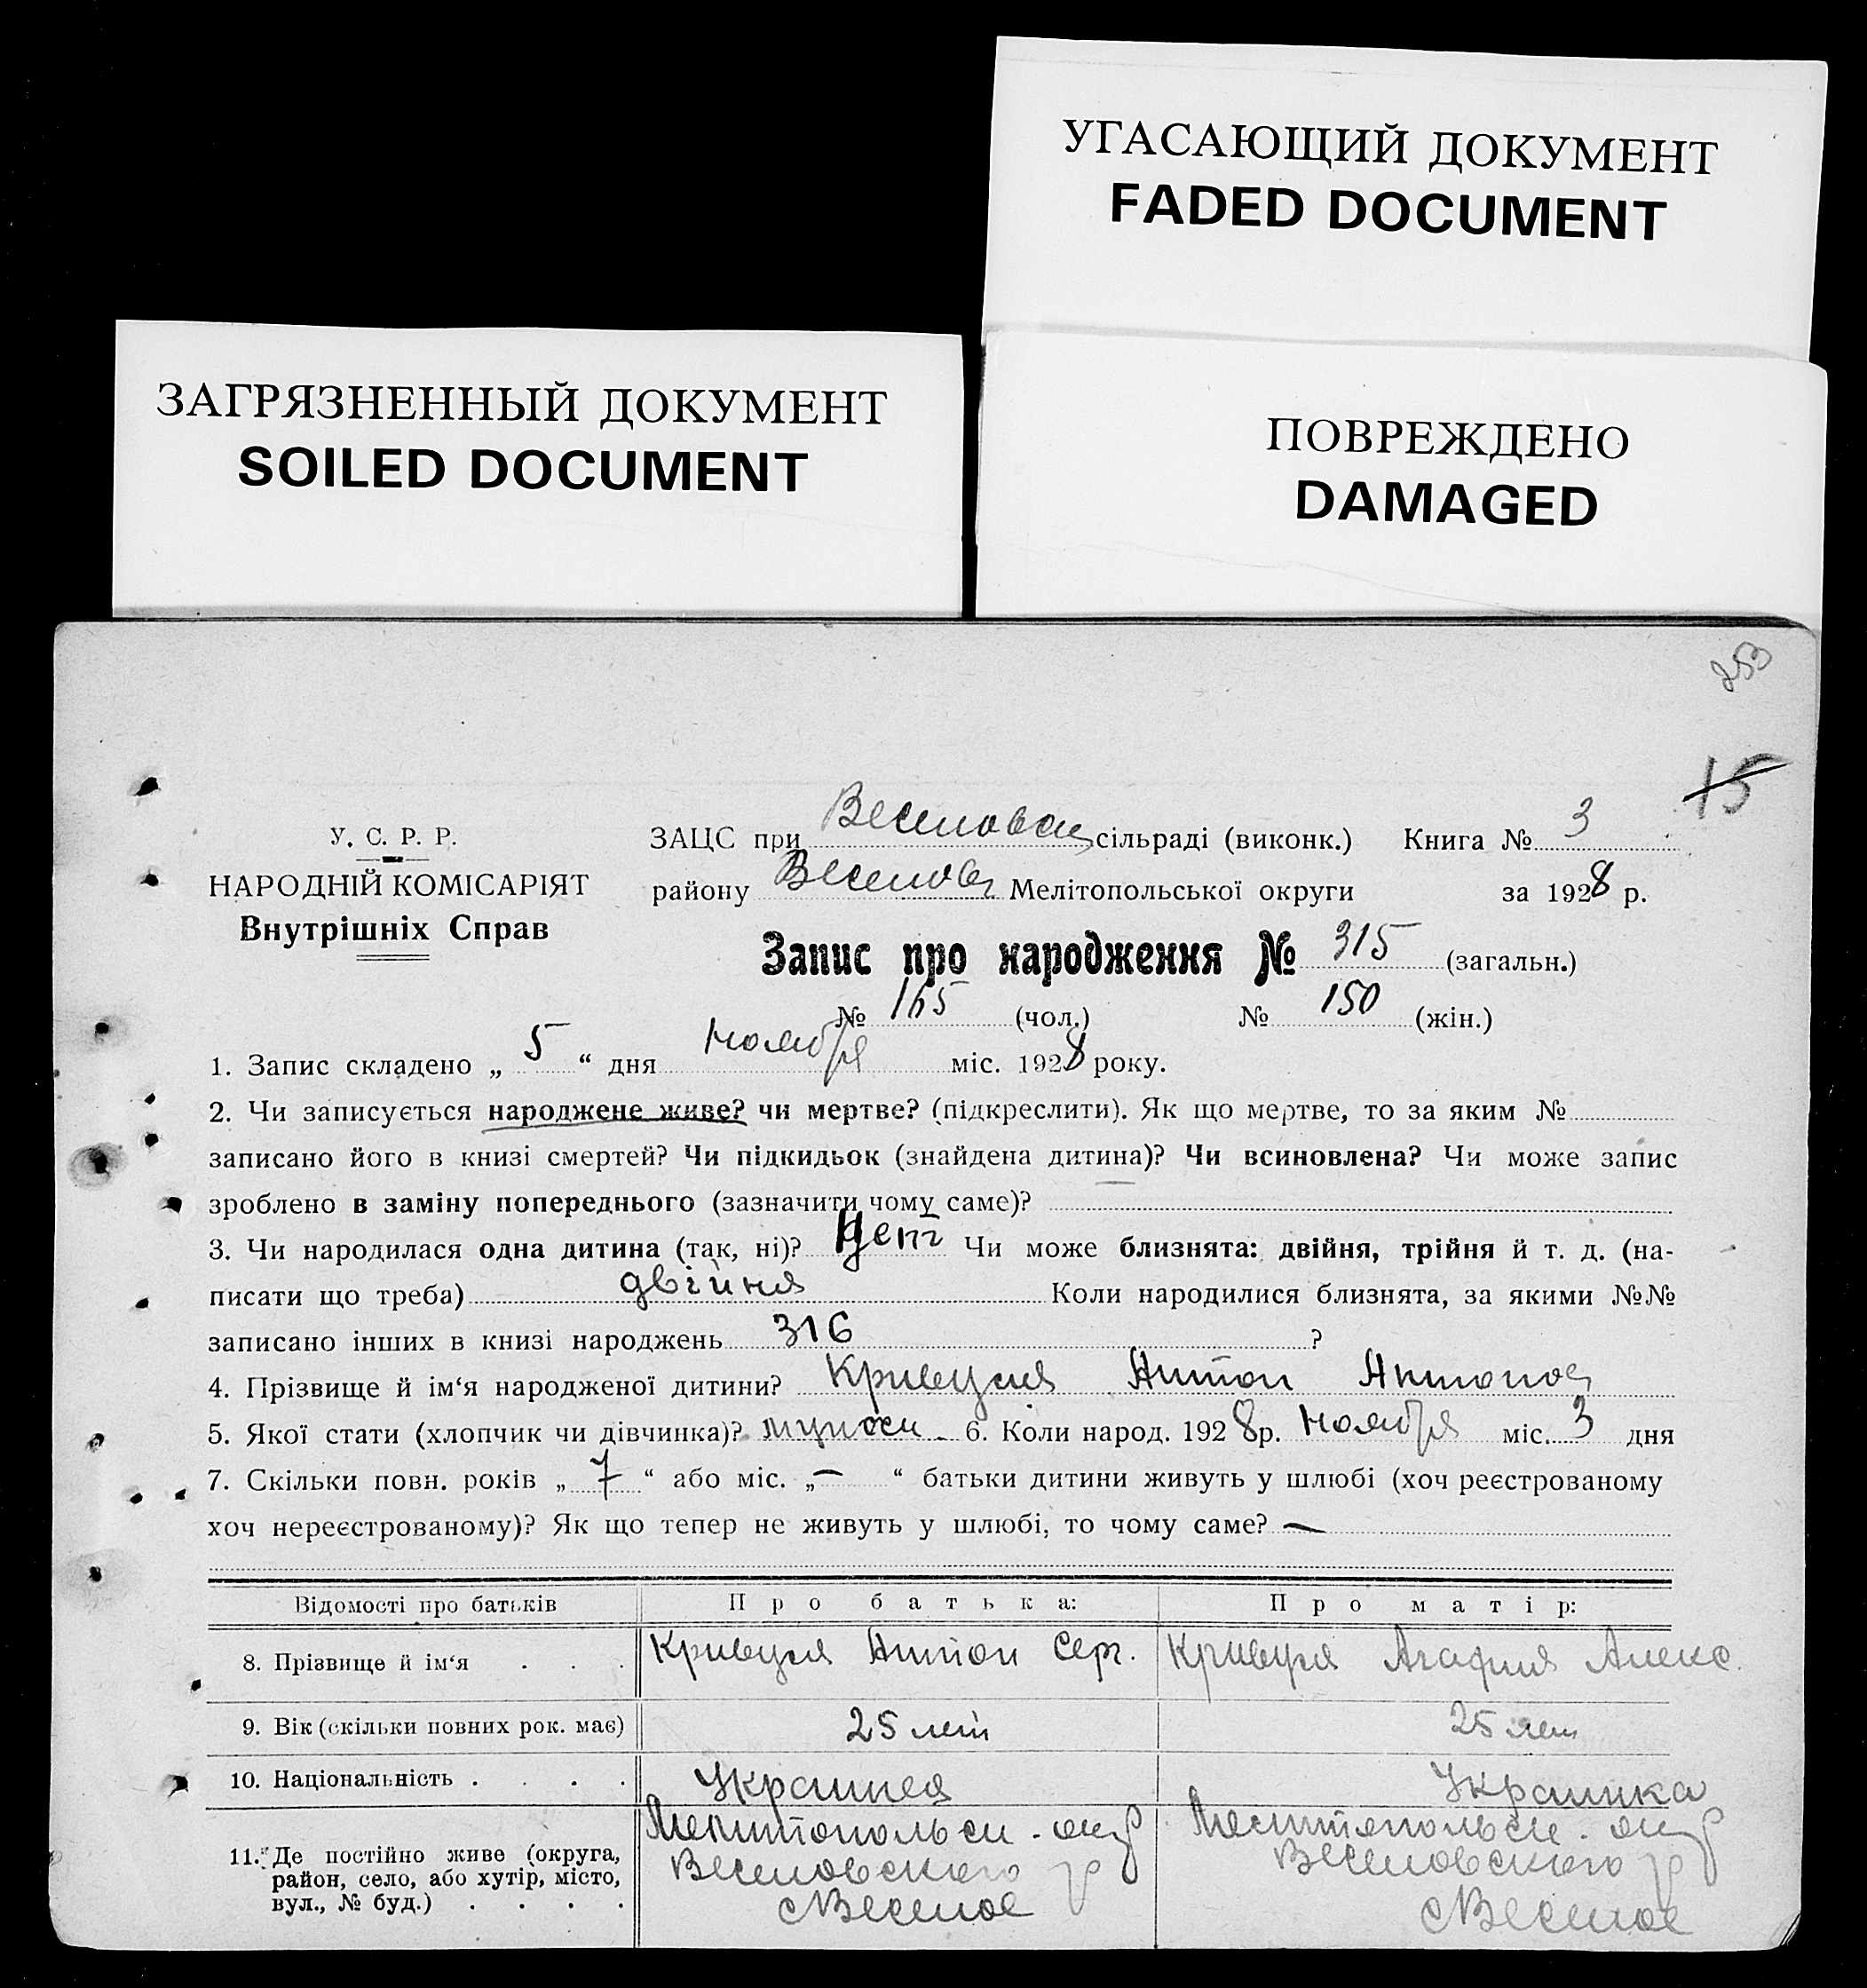 УГАСАЮЩИЙ ДОКУМЕНТ
FADED DOCUMENT
ЗАГРЯЗНЕННЫЙ ДОКУМЕНТ
SOILED DOCUMENT
ПОВРЕЖДЕНО
DAMAGED
253
15
У. С. Р. Р.
НАРОДНІЙ КОМІСАРІЯТ
Внутрішніх Справ
ЗАЦС при Веселовск сільраді (виконк.) Книга № 3
району Веселов Мелітопольської округи за 1928 р.
Запис про народження № 315 (загальн.)
№ 165 (чол.) № 150 (жін.)
1. Запис складено „ 5 “ дня Ноября міс. 1928 року.
2. Чи записується народжене живе? чи мертве? (підкреслити). Як що мертве, то за яким №
записано його в книзі смертей? Чи підкидьок (знайдена дитина)? Чи всиновлена? Чи може запис
зроблено в заміну попереднього (зазначити чому саме)?
3. Чи народилася одна дитина (так, ні)? Нет Чи може близнята: двійня, трійня й т. д. (на-
писати що треба) двійня Коли народилися близнята, за якими №№
записано інших в книзі народжень 316 ?
4. Прізвище й ім‘я народженої дитини? Кривуля Антон Антонов
5. Якої стати (хлопчик чи дівчинка)? мужск 6. Коли народ. 1928 р. Ноября міс. 3 дня
7. Скільки повн. років „ 7 “ або міс. „ — “ батьки дитини живуть у шлюбі (хоч реєстрованому
хоч нереєстрованому)? Як що тепер не живуть у шлюбі, то чому саме? —
Відомості про батьків Про батька: Про матір:
8. Прізвище й ім‘я . . . Кривуля Антон Серг. Кривуля Агафия Алекс.
9. Вік (скільки повних рок. має) 25 лет 25 лет
10. Національність . . . . Украинец Украинка
11. Де постійно живе (округа, район, село, або хутір, місто, вул., № буд.) . . . .
Мелитопольск. окр Веселовского р с Веселое
Мелитопольск. окр Веселовского р с Веселое